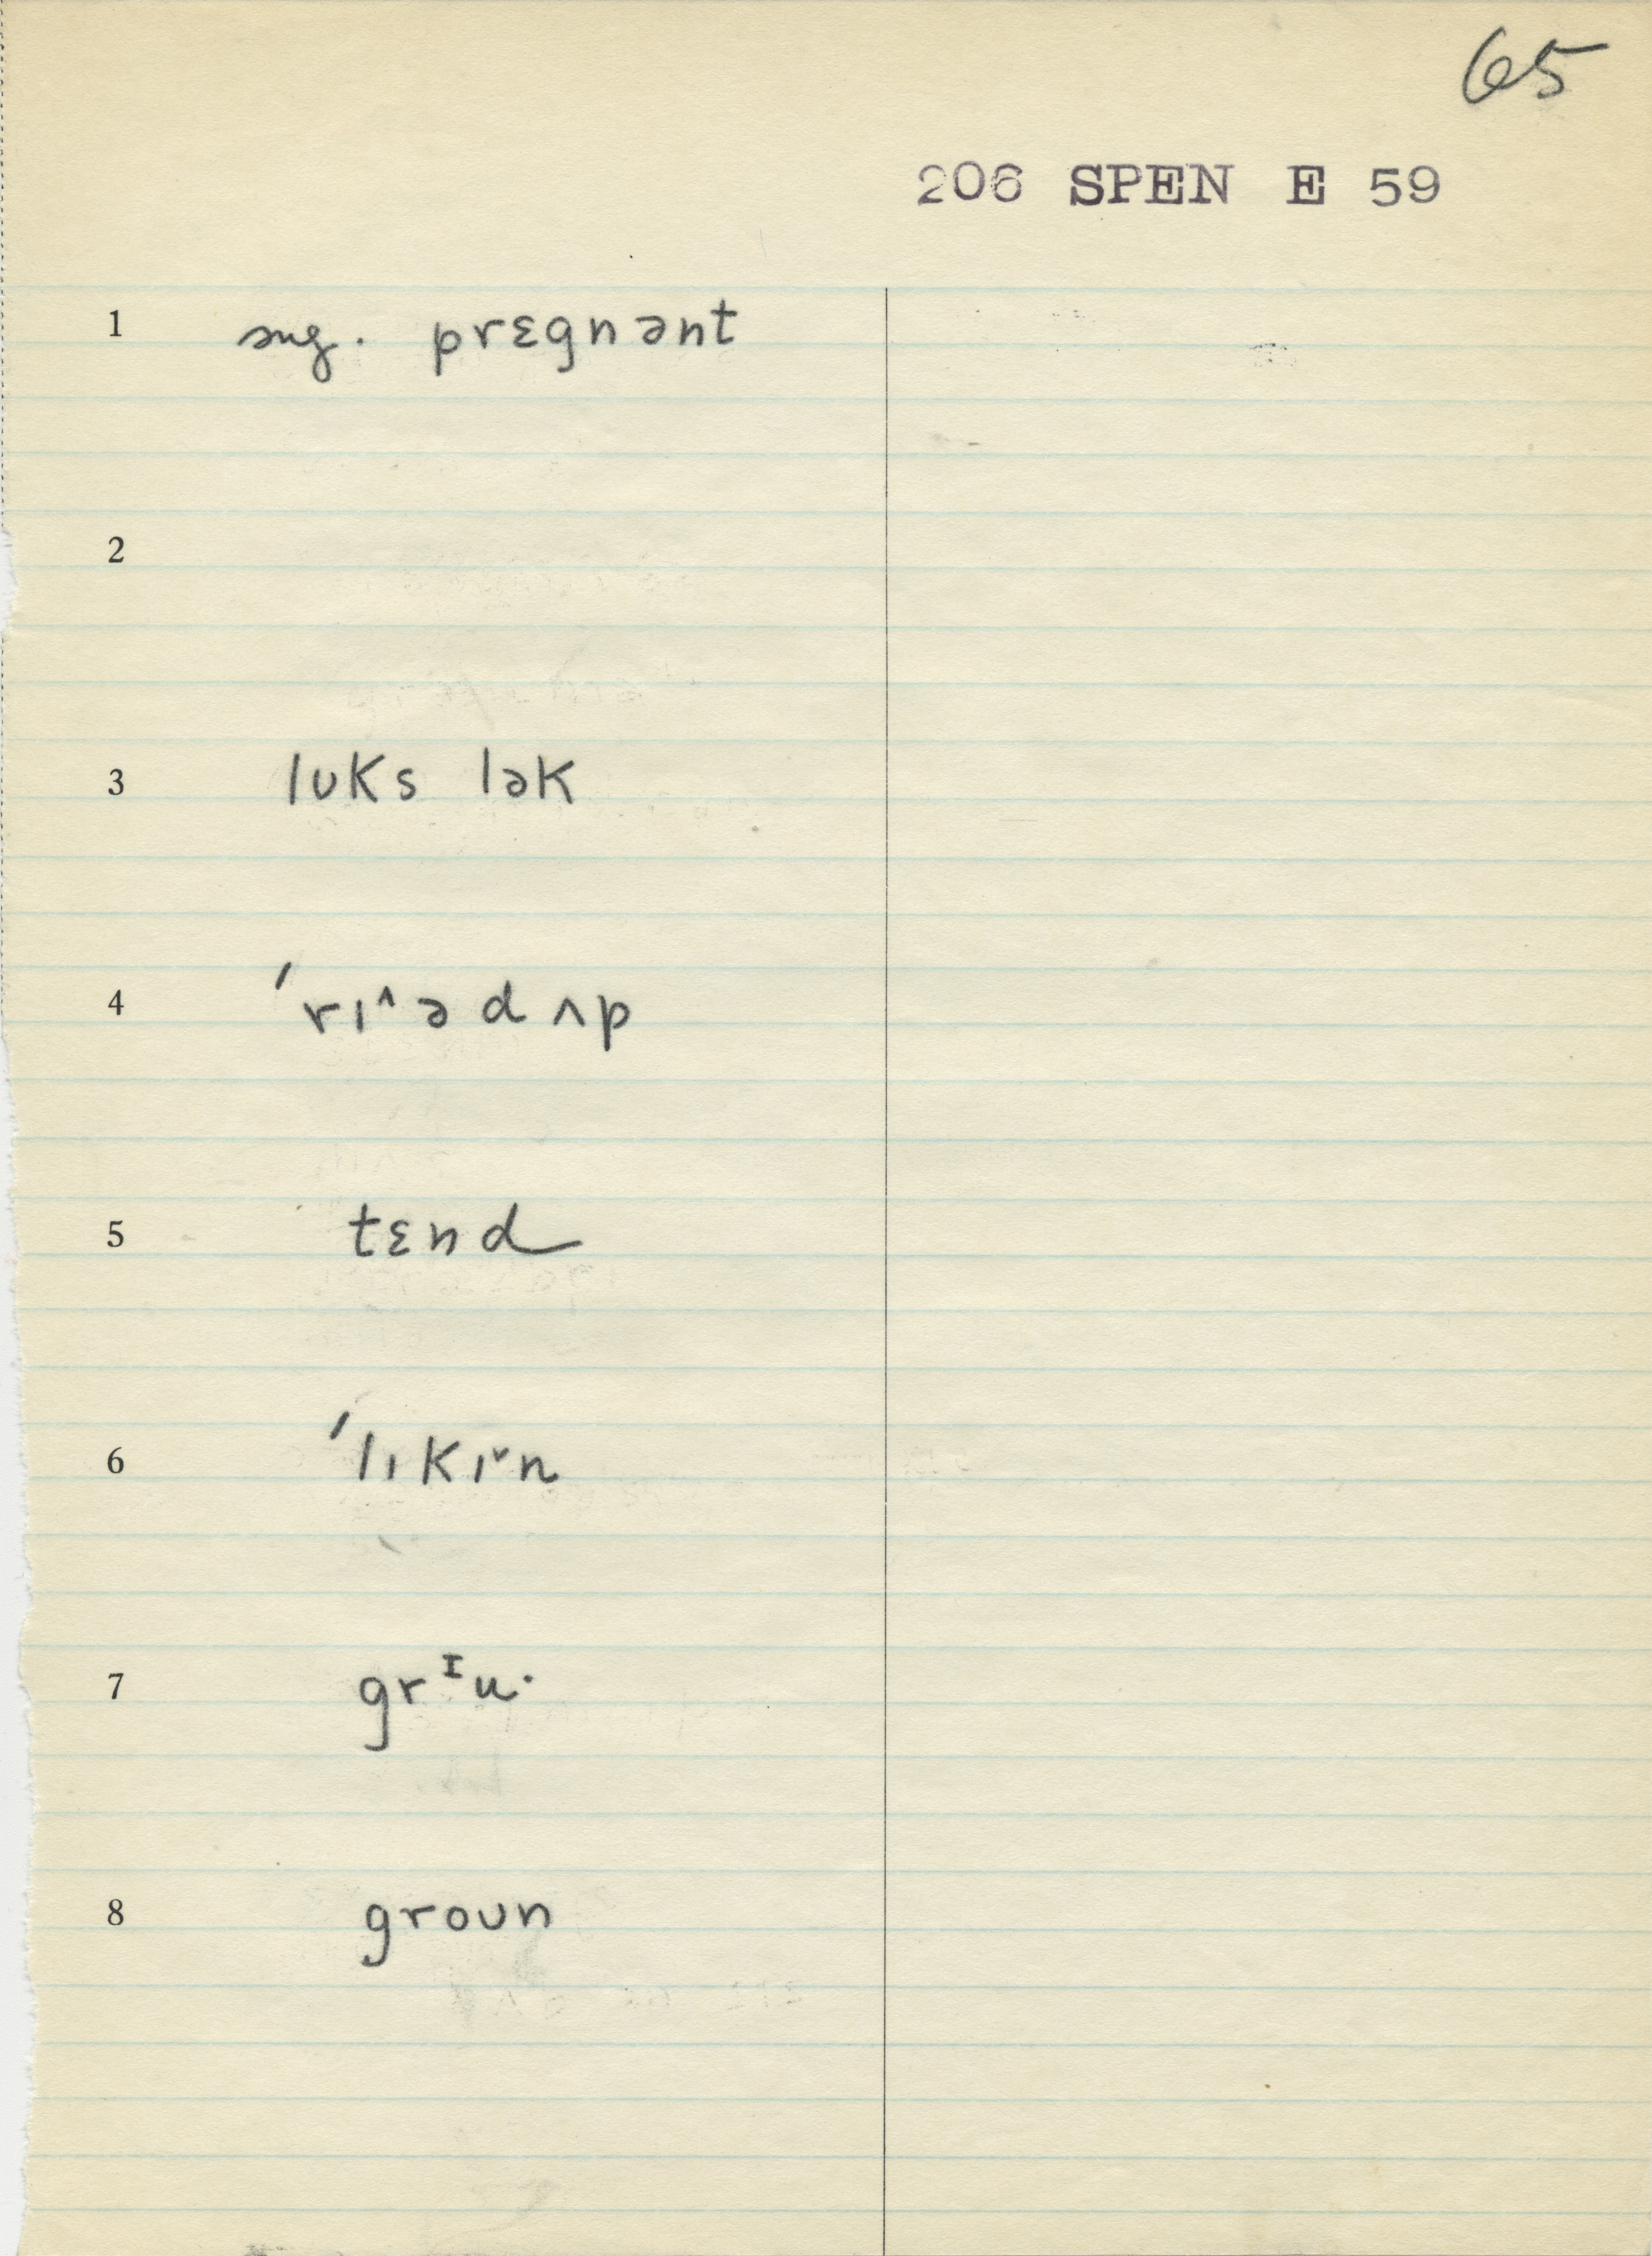 65
206 SPEN E 59
1 sug. prɛgnənt
2
3 lʊks lək
4 ˈrɪ^əd ʌp
5 tɛnd
6 ˈlɪkɪˇn
7 grᴵu·
8 groʊn